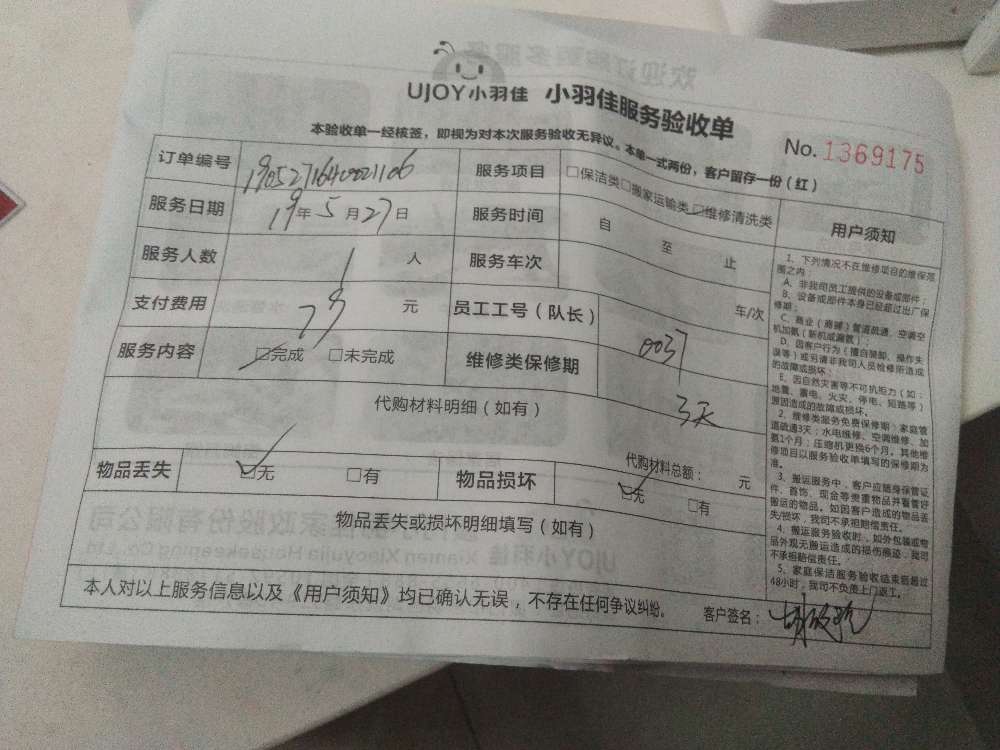 UJOY小羽佳 小羽佳服务验收单
本验收单一经核签，即视为对本次服务验收无异议。本单一式两份，客户留存一份（红）
No. 1369175
订单编号 1905271640021106 服务项目 □保洁类□搬家运输类□维修清洗类
服务日期 19年5月27日 服务时间 自 至 止
服务人数 1 人 服务车次 车/次
支付费用 元 员工工号（队长） 0037
服务内容 □完成 □未完成 维修类保修期 3天
代购材料明细（如有）
代购材料总额： 元
物品丢失 □无 □有 物品损坏 □无 □有
物品丢失或损坏明细填写（如有）
本人对以上服务信息以及《用户须知》均已确认无误，不存在任何争议纠纷。
客户签名：
用户须知
1、下列情况不在维修项目的维保范
围之内：
A、非我司员工提供的设备或部件；
B、设备或部件本身已经超过出厂保
修期；
C、商业（商铺）管道疏通，空调空
机加氟（新机或漏氟）；
D、因客户行为（擅自装卸、操作失
误等）或另请非我司人员检修所造成
的故障或损坏；
E、因自然灾害等不可抗拒力（如：
地震、雷电、火灾、停电、短路等）
原因造成的故障或损坏。
2、维修类服务免费保修期：家庭管
道疏通3天；水电维修、空调维修、加
氨1个月；压缩机更换6个月。其他维
修项目以服务验收单填写的保修期为
准。
3、搬运服务中，客户应随身保管证
件、首饰、现金等贵重物品并看管好
搬运的物品。如因客户造成的物品丢
失/损坏，我司不承担赔偿责任。
4、搬运服务验收时，如外包装或物
品外观无搬运造成的损伤痕迹，我司
不承担赔偿责任。
5、家庭保洁服务验收结束后超过
48小时，我司不负责上门返工。
欢迎订购更多服务
Xiamen Xiaoyujia Housekeeping Co.,Ltd.
UJOY小羽佳